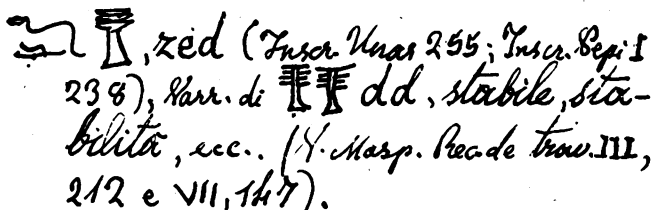 𓆓𓊽, zed (Inscr. Unas 255; Inscr. Pepi I
238), Varr. di 𓊽𓊽 dd, stabile, sta-
bilità, ecc.. (V. Masp. Rec. de trav. III,
212 e VII, 147).